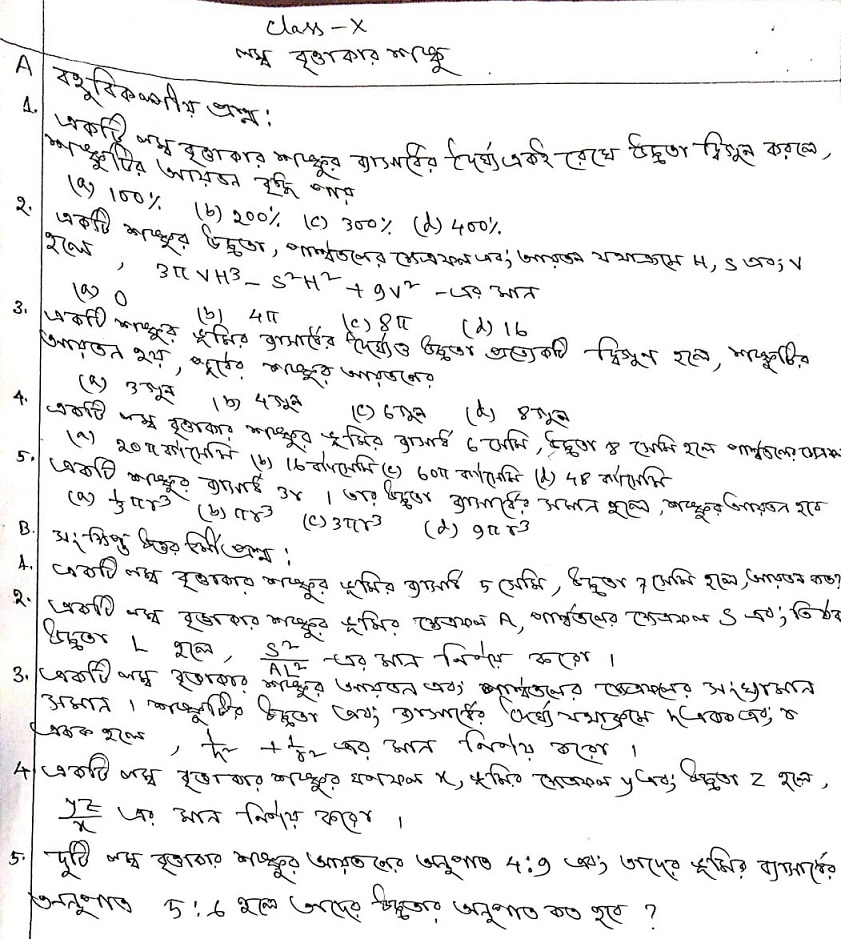 Class - X
লম্ব বৃত্তাকার শঙ্কু
A বহুবিকল্পীয় প্রশ্ন :
1. একটি লম্ব বৃত্তাকার শঙ্কুর ব্যাসার্ধের দৈর্ঘ্য একই রেখে উচ্চতা দ্বিগুন করলে,
শঙ্কুটির আয়তন বৃদ্ধি পায়
(a) 100% (b) 200% (c) 300% (d) 400%
2. একটি শঙ্কুর উচ্চতা, পার্শ্বতলের ক্ষেত্রফল এবং আয়তন যথাক্রমে H, S এবং V
হলে, 3π VH³ - S²H² + 9V² -এর মান
(a) 0 (b) 4π (c) 8π (d) 16
3. একটি শঙ্কুর ভূমির ব্যাসার্ধের দৈর্ঘ্য ও উচ্চতা প্রত্যেকটি দ্বিগুণ হলে, শঙ্কুটির
আয়তন হয়, পূর্বের শঙ্কুর আয়তনের
(a) 3গুন (b) 4গুন (c) 6গুন (d) 8গুন
4. একটি লম্ব বৃত্তাকার শঙ্কুর ভূমির ব্যাসার্ধ 6 সেমি, উচ্চতা 8 সেমি হলে পার্শ্বতলের
(a) 20π বর্গসেমি (b) 16 বর্গসেমি (c) 60π বর্গসেমি (d) 48 বর্গসেমি
5. একটি শঙ্কুর ব্যাসার্ধ 3r । তার উচ্চতা ব্যাসার্ধের সমান হলে, শঙ্কুর আয়তন হবে
(a) ⅓πr³ (b) πr³ (c) 3πr³ (d) 9πr³
B. সংক্ষিপ্ত উত্তর ধর্মী প্রশ্ন :
1. একটি লম্ব বৃত্তাকার শঙ্কুর ভূমির ব্যাসার্ধ 5 সেমি, উচ্চতা 7 সেমি হলে, আয়তন কত?
2. একটি লম্ব বৃত্তাকার শঙ্কুর ভূমির ক্ষেত্রফল A, পার্শ্বতলের ক্ষেত্রফল S এবং তির্যক
উচ্চতা L হলে, S²/AL² -এর মান নির্ণয় করো ।
3. একটি লম্ব বৃত্তাকার শঙ্কুর আয়তন এবং পার্শ্বতলের ক্ষেত্রফলের সংখ্যামান
সমান । শঙ্কুটির উচ্চতা এবং ব্যাসার্ধের দৈর্ঘ্য যথাক্রমে h একক এবং r
একক হলে, 1/h² + 1/r² এর মান নির্ণয় করো ।
4. একটি লম্ব বৃত্তাকার শঙ্কুর ঘনফল x, ভূমির ক্ষেত্রফল y এবং উচ্চতা z হলে,
yz/x এর মান নির্ণয় করো ।
5. দুটি লম্ব বৃত্তাকার শঙ্কুর আয়তনের অনুপাত 4:9 এবং তাদের ভূমির ব্যাসার্ধের
অনুপাত 5:6 হলে তাদের উচ্চতার অনুপাত কত হবে ?